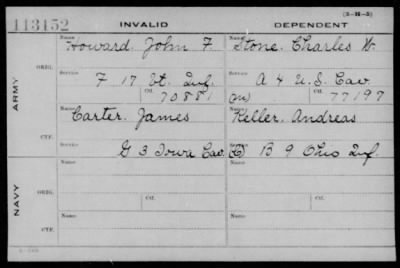 (3-16-3)
113152 INVALID DEPENDENT
Name Howard. John F. Name Stone. Charles W.
ORIG.
Service F 17 Vt. Inf. Service A 4 U.S. Cav.
Ctf. 70881 Ctf. 77197
ARMY
Name Carter. James Name Keller. Andreas
CTF.
Service G 3 Iowa Cav. Service B 9 Ohio Inf.
Name Name
ORIG.
Service Ctf. Service Ctf.
NAVY
Name Name
CTF.
Service Service